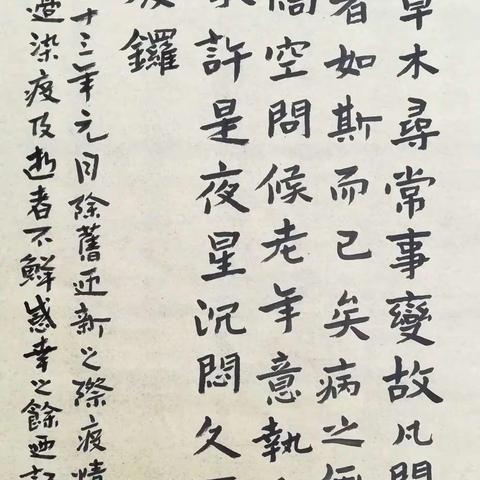 草木尋常事變故凡間
者如斯而已矣病之
空問候老年意執
許是夜星沉悶久
鑼
十三年元月除舊迎新之際疫情
遭染疫及逝者不鮮感幸之餘迺記